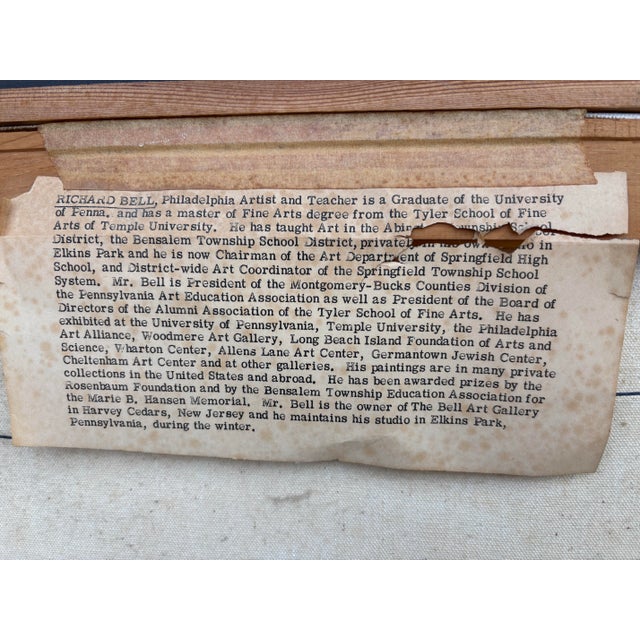 RICHARD BELL, Philadelphia Artist and Teacher is a Graduate of the University
of Penna. and has a master of Fine Arts degree from the Tyler School of Fine
Arts of Temple University. He has taught Art in the School
District, the Bensalem Township School District, in
Elkins Park and he is now Chairman of the Art Department of Springfield High
School, and District-wide Art Coordinator of the Springfield Township School
System. Mr. Bell is President of the Montgomery-Bucks Counties Division of
the Pennsylvania Art Education Association as well as President of the Board of
Directors of the Alumni Association of the Tyler School of Fine Arts. He has
exhibited at the University of Pennsylvania, Temple University, the Philadelphia
Art Alliance, Woodmere Art Gallery, Long Beach Island Foundation of Arts and
Science, Wharton Center, Allens Lane Art Center, Germantown Jewish Center,
Cheltenham Art Center and at other galleries. His paintings are in many private
collections in the United States and abroad. He has been awarded prizes by the
Rosenbaum Foundation and by the Bensalem Township Education Association for
the Marie B. Hansen Memorial. Mr. Bell is the owner of The Bell Art Gallery
in Harvey Cedars, New Jersey and he maintains his studio in Elkins Park,
Pennsylvania, during the winter.